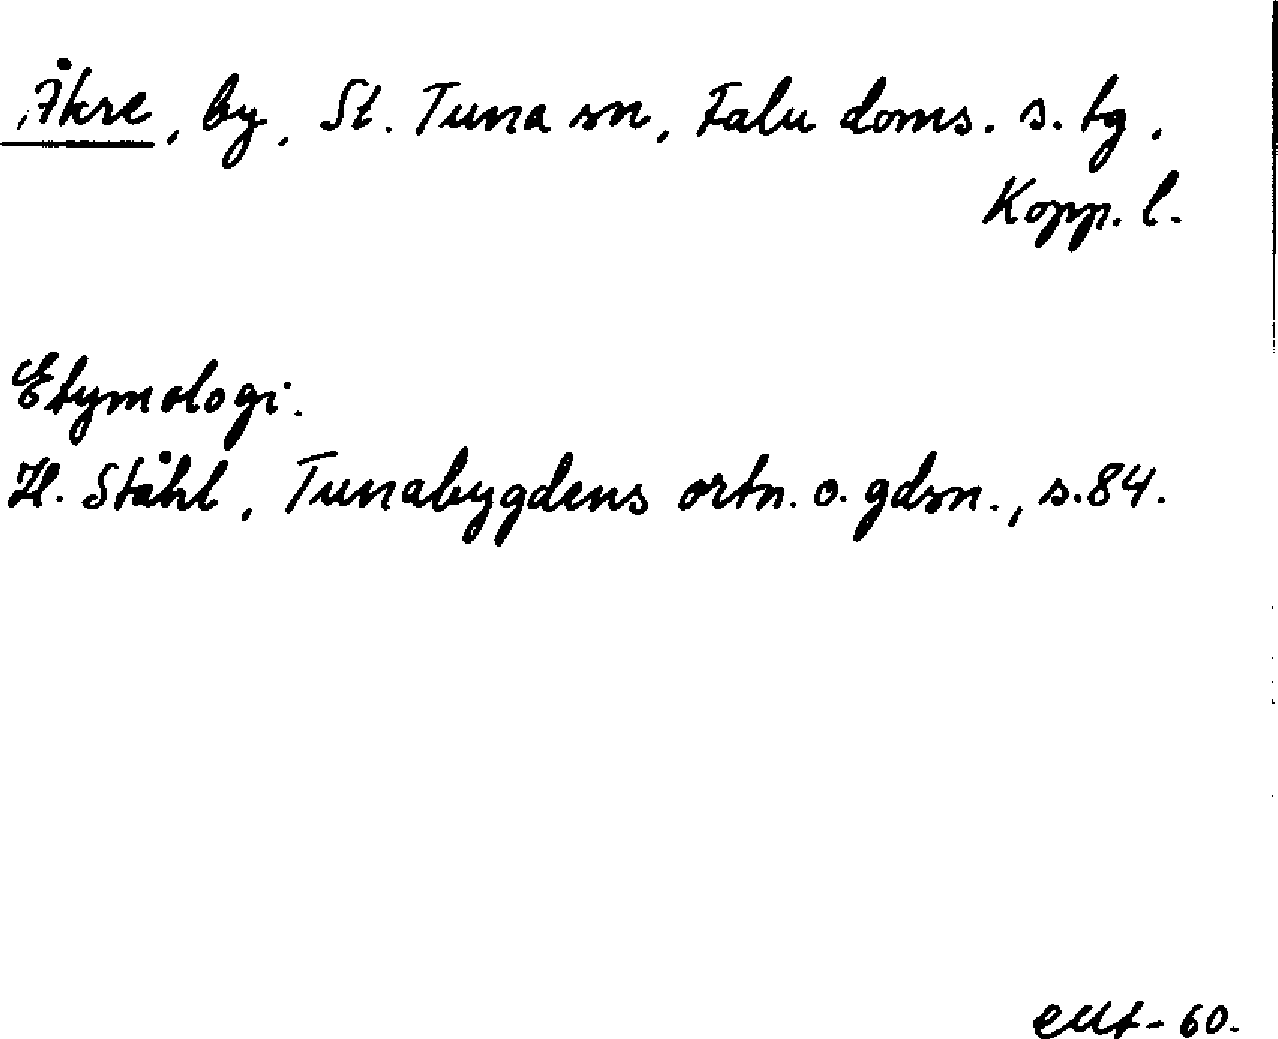 Åkre, by, St. Tuna sn, Falu doms. s. tg.
Kopp. l.
Etymologi.
H. Ståhl, Tunabygdens ortn. o. gdsn., s.84.
-60.